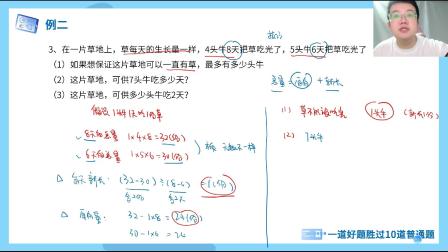 例二
3、在一片草地上，草每天的生长量一样，4头牛8天把草吃光了，5头牛6天把草吃光了
（1）如果想保证这片草地可以一直有草，最多有多少头牛
（2）这片草地，可供7头牛吃多少天？
（3）这片草地，可供多少头牛吃2天？
总量=原有+新长
假设1头牛1天吃1份草
8天的总量 1×4×8=32(份)
6天的总量 1×5×6=30(份)
天数不一样
每天新长：(32-30)÷(8-6)=1(份)
原有量：32-1×8=24(份)
30-1×6=24
(1) 1头牛 (新长1份)
(2) 7头牛
一道好题胜过10道普通题